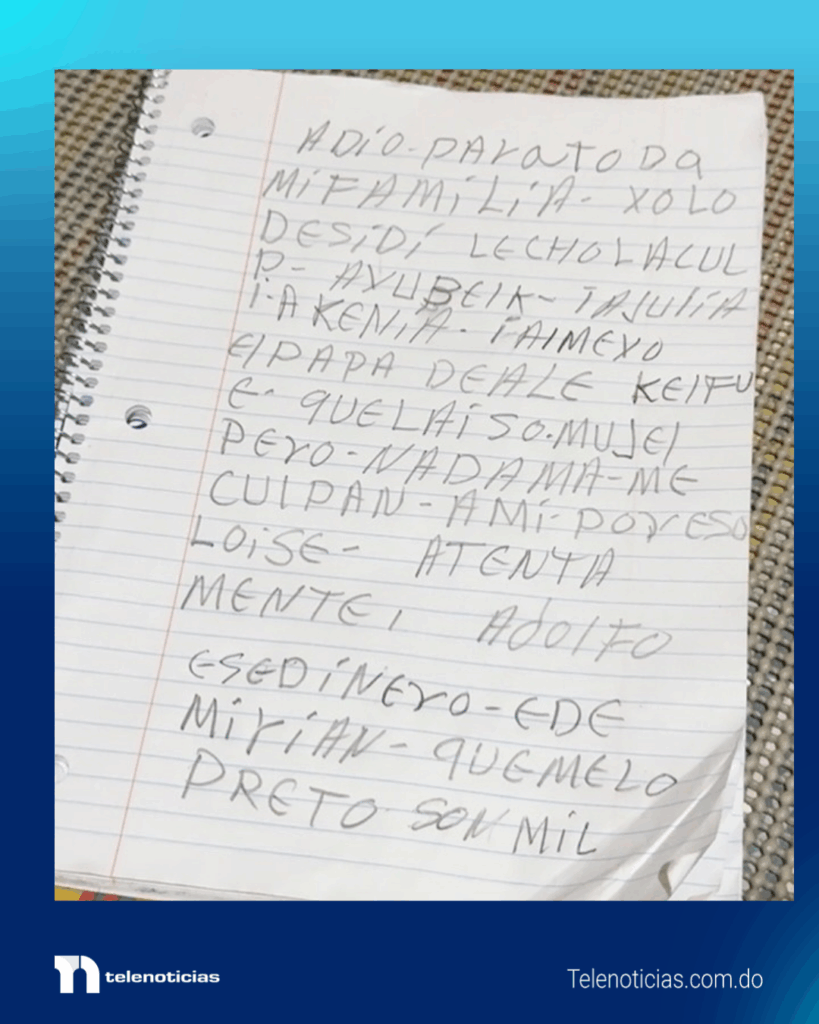 ADIO-PARATODA
MIFAMILIA- YOLO
DESIDI LECHOLACUL
P- AYUBEIK- IAJULIA
I-A KENIA- IAIMEYO
EL PAPA DEALE KEIFU
E- QUELAISO.MUJEl
PERO-NADAMA-ME
CULPAN-AMI-POR ESO
LOISE- ATENTA
MENTE, AdOlFO
ESEDINERO-EDE
MIRIAN-QUEMELO
PRETO SON MIL
telenoticias
Telenoticias.com.do